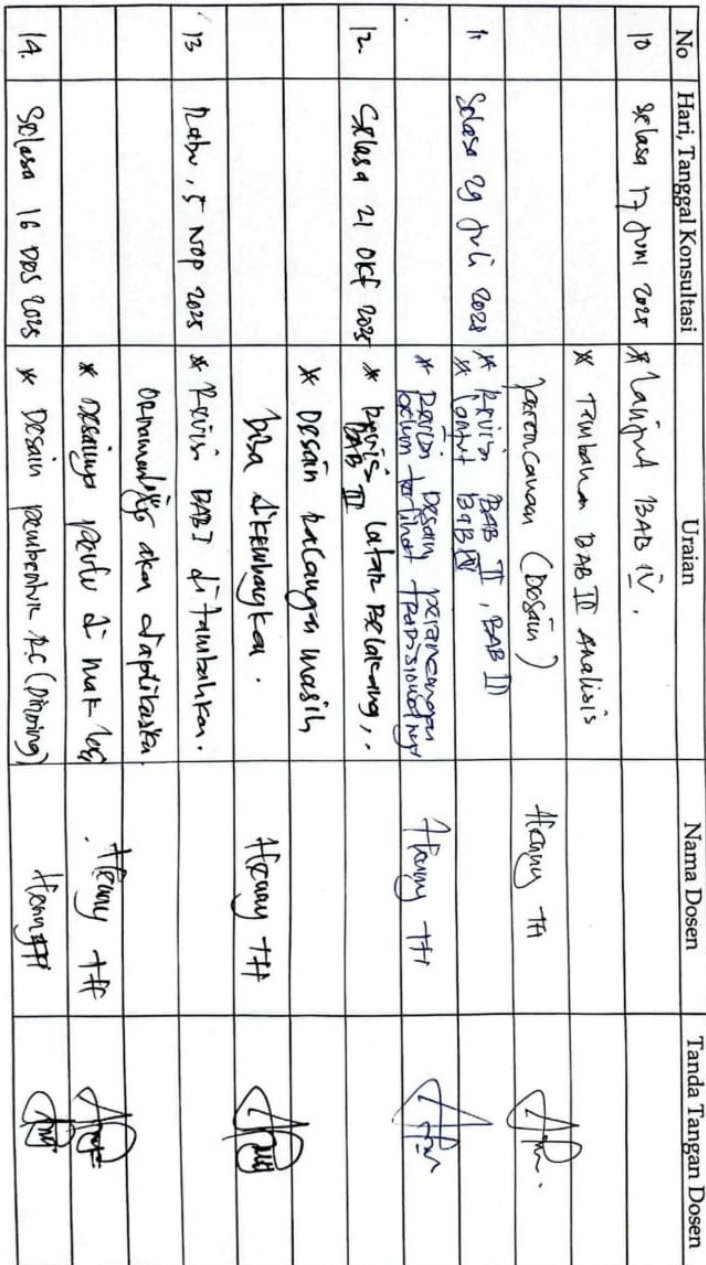 No Hari, Tanggal Konsultasi Uraian Nama Dosen Tanda Tangan Dosen
10 Selasa 17 Juni 2025 * Lanjut BAB IV.
* Tambahan BAB II Analisis
perencanaan (Desain) Henny TH
11 Selasa 29 Juli 2025 * Revisi BAB II, BAB III
* Lanjut BAB IV
* Revisi Desain perancangan
belum terlihat tradisionalnya Henny TH
12. Selasa 21 Okt 2025 * Revisi Latar Belakang,
BAB II
* Desain kalangan masih
bisa dikembangkan. Henny TH
13 Rabu, 5 Nop 2025 * Revisi BAB I ditambahkan.
Ornamen yg akan diaplikasikan.
* Desainnya perlu di lagi Henny TH
14. Selasa 16 Des 2025 * Desain pembentuk RC (Dinding) Henny TH